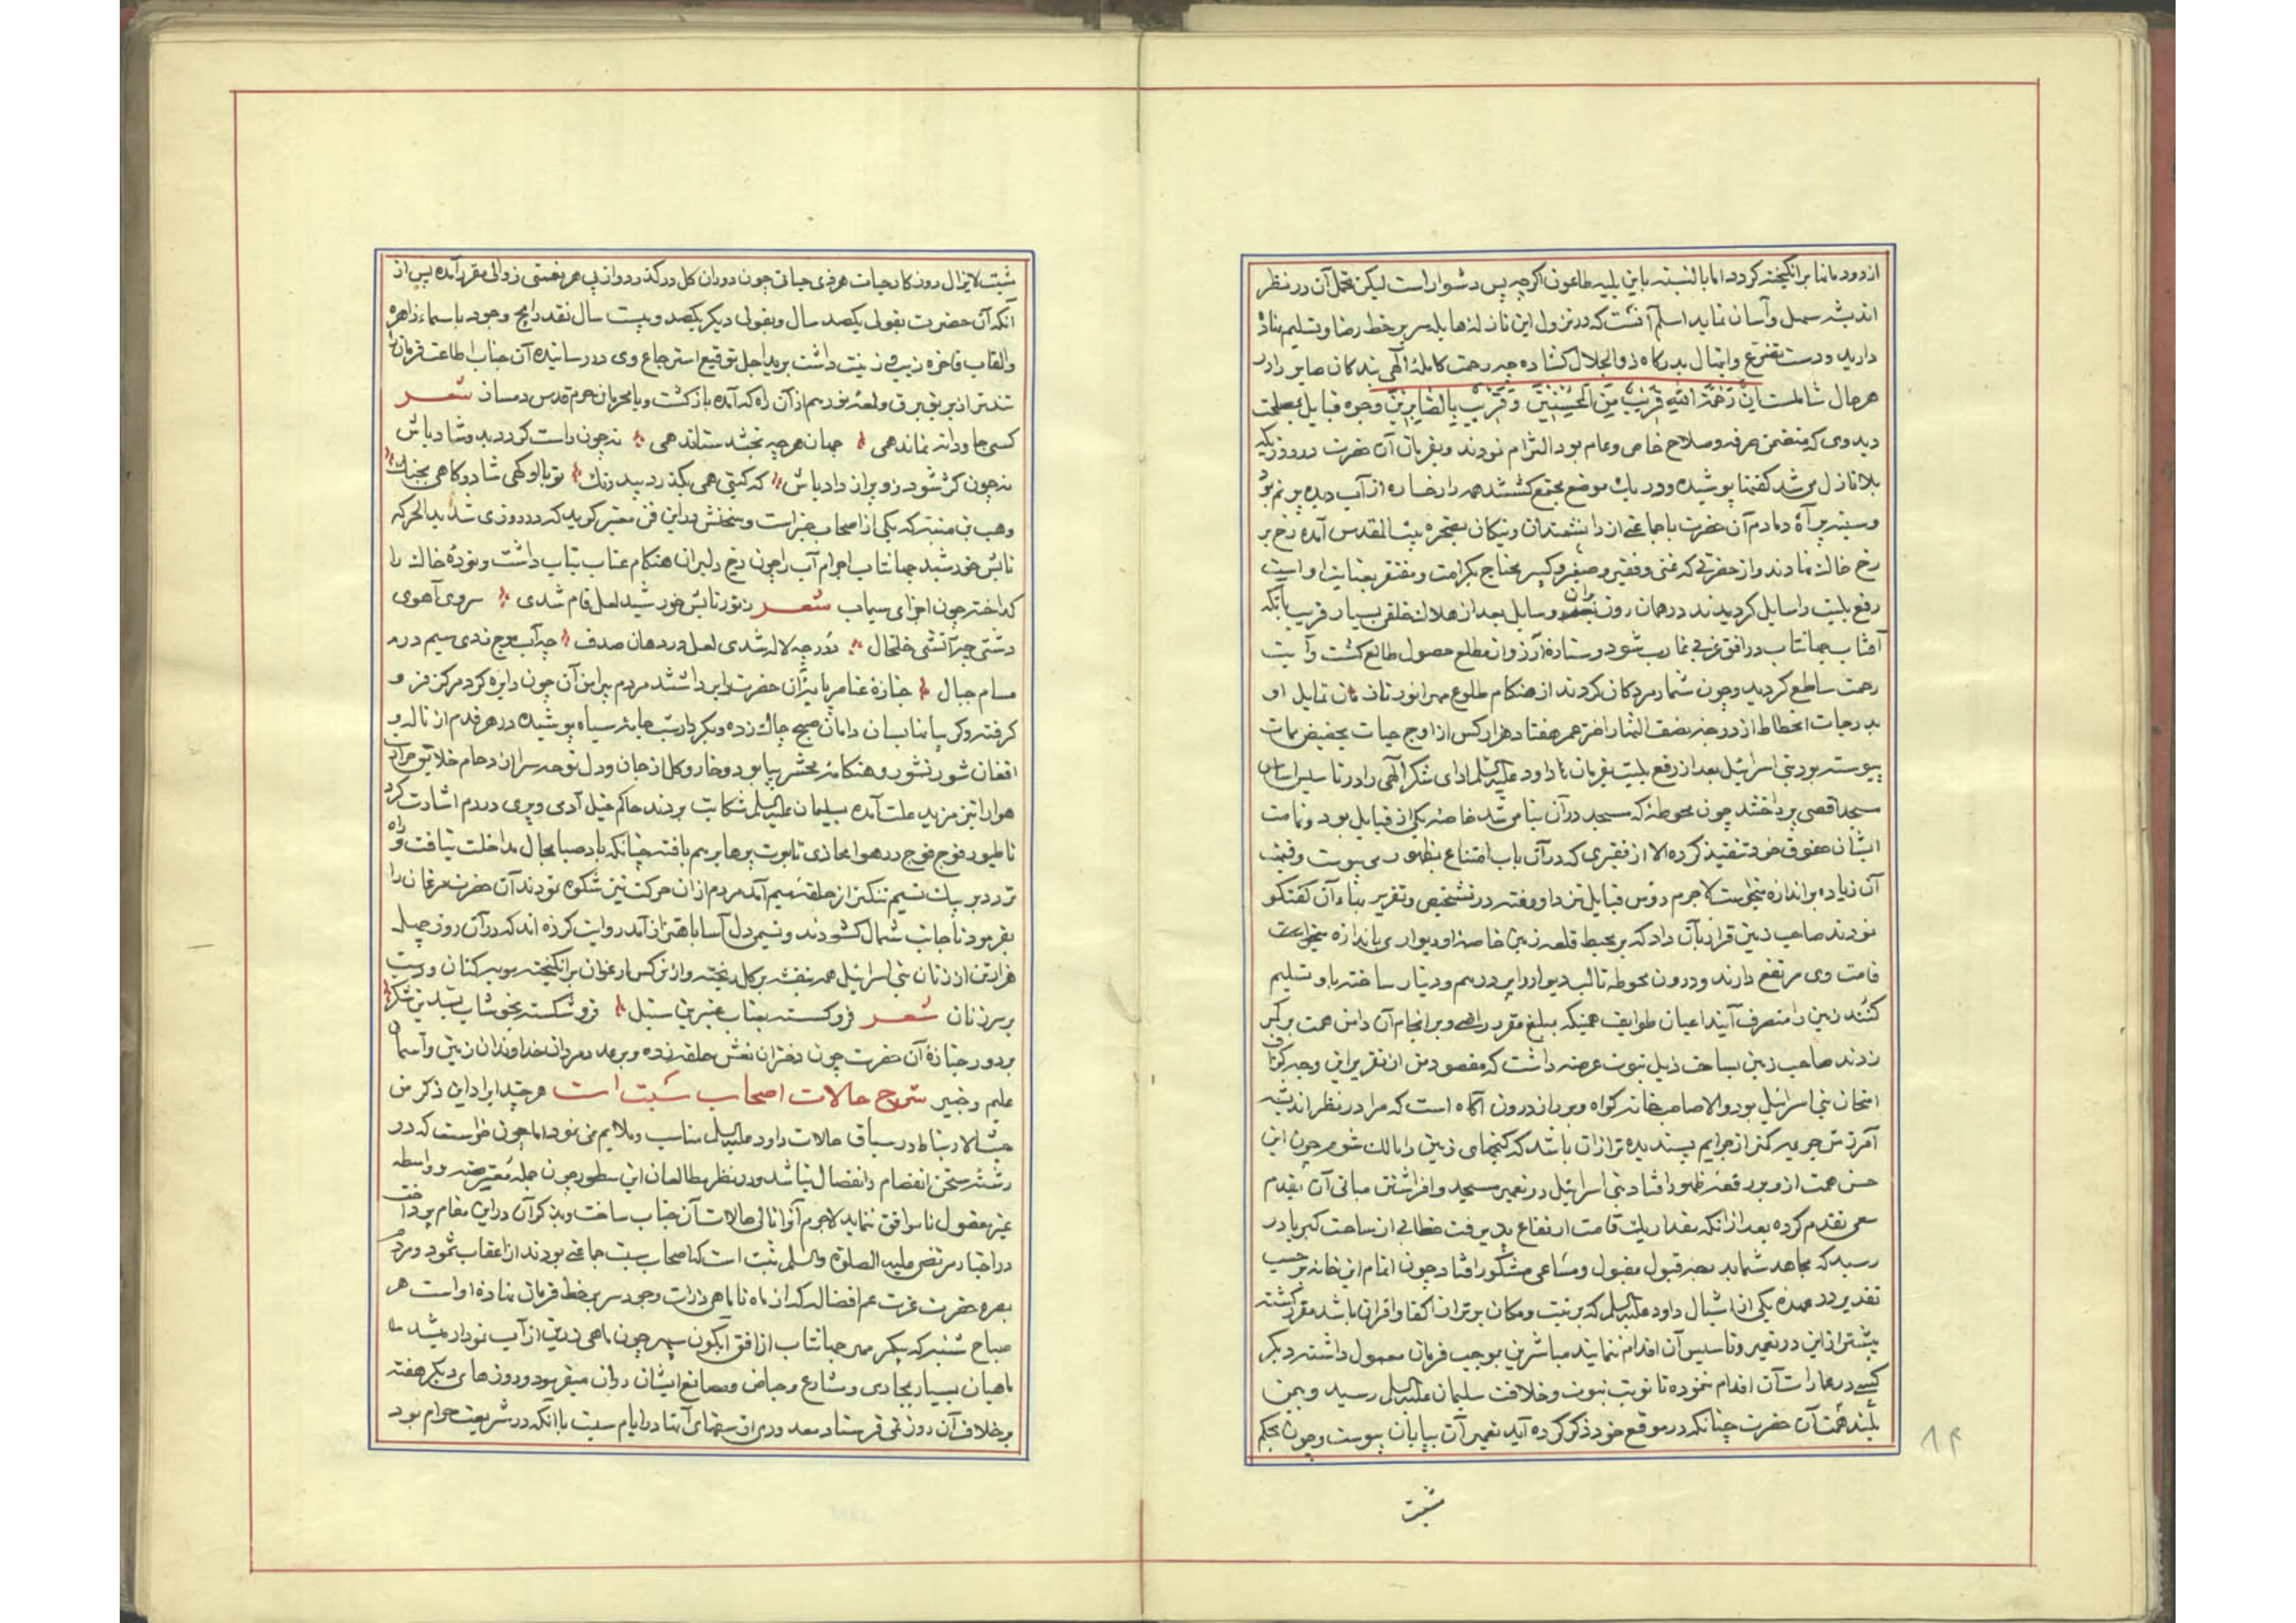 از دود مانما برانکیخته کردد اما بالنسبته باین بلیه طاعون اکرچه پس دشوار است لیکن تحمل آن در نظر
اندیشه سهل وآسان نماید اسلم آنست که در نزول این نازله هایله سر بر خط رضا وتسلیم نهاده
دارید ودست تضرع وابتهال بدرکاه ذوالجلال کشاده چه رحمت کامله الهی بندکان صابر را در
هر حال شاملست اِنَّ رَحْمَةَ اللهِ قَرِیبٌ مِنَ المُحْسِنِینَ وَ قَرِیبٌ بِالصَّابِرِینَ وجوه قبایل بمصلحت
دید وی که متضمن صرفه وصلاح خاص وعام بود التزام نمودند وبفرمان آن حضرت در روزیکه
بلا نازل می شد کفنها پوشیده ودر یک موضع مجتمع کشتند همه را رخساره از آب دیده پر نم بود
وسینه پر آه دمادم آن حضرت با جماعتی از دانشمندان ونیکان بصخره بیت المقدس آمده رخ بر
رخ خاک نهادند واز حضرتی که غنی وفقیر وصغیر وکبیر محتاج بکرامت ومفتقر بعنایت او است
رفع بلیت را سایل کردیدند در همان روز وسایل بعد از هلاک خلقی بسیار قریب بآنکه
آفتاب جهانتاب در افق غربی غارب شود وستاره آرزو از مطلع حصول طالع کشت وآیت
رحمت ساطع کردید وچون شمار مردکان کردند از هنکام طلوع مهر انور تا زمان تمایل او
بدرجات انحطاط از درجه نصف النهار اختر عمر هفتاد هزار کس از اوج حیات بحضیض ممات
پیوسته بود بنی اسرائیل بعد از رفع بلیت بفرمان داود علیه السلم ادای شکر الهی را در تاسیس اساس
مسجد اقصی پرداختند چون محوطه که مسجد در آن بنا می شد خاصه یکی از قبایل بود وتمامت
ایشان حقوق خود تنفیذ کرده الا از فقیری که در آن باب امتناع بظهور می پیوست وقیمت
آن زیاده بر اندازه میخواست لاجرم رؤس قبایل نزد داود رفته در تشخیص وتقریر بهاء آن کفتکو
نمودند صاحب زمین قرار بآن داد که بر محیط قلعه زمین خاصه او دیواری باندازه
قامت وی مرتفع دارند ودرون محوطه تا لب دیوار را پر درهم ودینار ساخته باو تسلیم
کنند زمین را متصرف آیند اعیان طوایف همینکه مبلغ مقرر راضی وبر انجام آن دامن همت بر کمر
زدند صاحب زمین بساحت ذیل نبوت عرضه داشت که مقصود من از تقریر این وجه کزاف
امتحان بنی اسرائیل بود والا صاحب خانه کواه وبر راز درون آکاه است که مرا در نظر اندیشه
آمرزش جریمه کمتر از جرایم پسندیده تر از آن باشد که کنجهای زمین را مالک شوم چون این
حسن همت از وی در قعر ظهور افتاد بنی اسرائیل در تعمیر مسجد وافراشتن مبانی آن بقدم
سعی تقدم کرده بعد از آنکه بمقدار یک قامت ارتفاع پذیرفت خطابی از ساحت کبریا در
رسید که مجاهد شما بدرجه قبول مقبول ومساعی مشکور افتاد چون اتمام این خانه بر حسب
تقدیر در عهده یکی از اشبال داود علیه السلم که برتبت ومکان برتر از اکفا واقران باشد مقرر کشته
پیشتر از این در تعمیر وتاسیس آن اقدام ننمایند مباشرین بموجب فرمان معمول داشته دیکر
کسی در عمارات آن اقدام ننموده تا نوبت نبوت وخلافت سلیمان علیه السلم رسید وبیمن
بلند همت آن حضرت چنانکه در موقع خود ذکر کرده آید تعمیر آن بپایان پیوست وچون بحکم
۸۴
مشیت
مشیت لایزال روزکار حیات هر ذی حیاتی چون دوران کل در کذر ودر از پی هر نعمتی زوالی مقرر آمده پس از
آنکه آن حضرت بقولی یکصد سال وبقولی دیکر یکصد وبیست سال نقد رایج وجود باسماء زاهره
والقاب فاخره زیب وزینت داشت برید اجل توقیع استرجاع وی در رسانیده آن جناب اطاعت فرمان را
تندتر از بریق برق ولمعه نور هم از آن راه که آمده باز کشت وبا محرمان حرم قدس دمساز شعر
کسی جاودانه نماند همی جهان هرچه بخشد ستاند همی نه چون راست کردد بدو شاد باش
نه چون کژ شود زو براز داد باش که کیتی همی بکذرد بیدرنک تو با او کهی شاد وکاهی بجنک
وهب بن منبه که یکی از اصحاب خبر است وسخنش در این فن معتبر کوید که در روزی شدید الحر که
تابش خورشید جهانتاب اجرام آب را چون رخ دلبران هنکام عتاب بتاب داشت وتوده خاک را
کداخته چون اجزای سیماب شعر ز نور تابش خورشید لعل فام شدی سروی آهوی
دشتی چو آتشی خلخال ز در چو لاله شدی لعل در دهان صدف چو آب موج زدی سیم در
مسام جبال جنازه عناصر آن حضرت را برداشتند مردم پیرامن آن چون دایره کرد مرکز فرو
کرفته وکریبانها بسان دامان صبح چاک زده وبکردار شب جامه سیاه پوشیده در هر قدم از ناله و
افغان شور نشور وهنکامه محشر بپا بود وخار وکل از جان ودل نوحه سرا از دحام خلایق حرارت
هوا را تیز مزید علت آمده بسلیمان علیه السلم شکایت بردند حاکم خیل آدمی وپری در دم اشارت کرد
تا طیور فوج فوج در هوا بمحاذی تابوت پرها بر هم بافته چنانکه باد صبا مجال مداخلت نیافت وراه
تردد بر پیک نسیم تنکتر از حلقه میم آمد مردم از آن حرکت نیز شکوه نمودند آن حضرت مرغان را
بفرمود تا جانب شمال کشودند ونسیمی دل آسا باهتزاز آمد روایت کرده اند که در آن روز چهل
هزار تن از زنان بنی اسرائیل همه بنفشه بر کل ریخته واز نرکس ارغوان برانکیخته مویه کنان ودست
بر سر زنان شعر فرو کسسته بعناب عنبرین سنبل فرو شکسته بخوشاب بسدین شکر
بر دور جنازه آن حضرت چون دختران نعش حلقه زده وبر عدد مردان خداوندان زمین وآسمان
علیم وخبیر شرح حالات اصحاب سَبت است هر چند ایراد این ذکر من
حیث الارتباط در سیاق حالات داود علیه السلم مناسب وملایم می نمود اما چون خواست که در
رشته سخن انفصام وانفصال نباشد ودر نظر مطالعان این سطور چون جمله معترضه وواسطه
غیر معقول ناموافق ننماید لاجرم آنرا تالی حالات آن جناب ساخت وبذکر آن در این مقام پرداخت
در اخبار مرتضی علیه الصلوة والسلم ثبت است که اصحاب سبت جماعتی بودند از اعقاب ثمود ومردم
بصره حضرت عزت عم افضاله که از ماه تا ماهی ذرات وجود سر بر خط فرمان نهاده او است هر
صباح شنبه که پیکر مهر جهانتاب از افق آبکون سپهر چون ماهی زرین از آب نمودار میشد
ماهیان بسیار بمجاری ومشارع وحیاض ومصانع ایشان روان میفرمود ودر روزهای دیکر هفته
بر خلاف آن روز نمی فرستاد صید در ایام سبت با آنکه در شریعت حرام بود